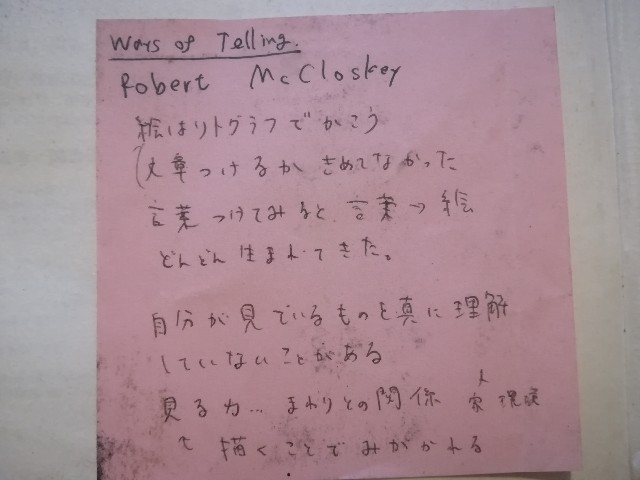 Ways of Telling.
Robert McCloskey
絵はリトグラフでかこう
(文章つけるか きめてなかった
言葉つけてみると 言葉→絵
どんどん生まれてきた。
自分が見ているものを真に理解
していないことがある
見る力… まわりとの関係 人 家
を 描くことでみがかれる